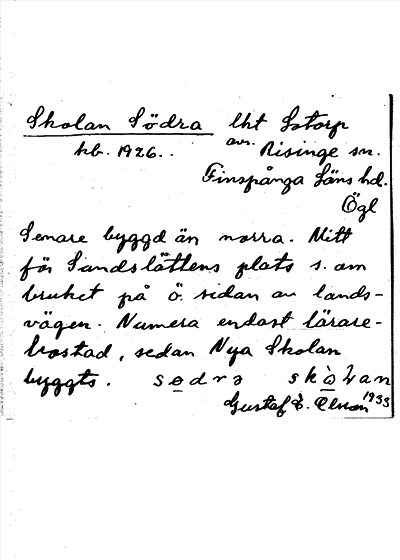 Skolan Södra lht Lotorp
kb. 1926. avs. Risinge sn.
Finspånga Läns hd.
Ögl
Senare byggd än norra. Mitt
för Sandslättens plats s. om
bruket på ö. sidan av lands-
vägen. Numera endast lärare-
bostad, sedan Nya Skolan
byggts. södra skòlan
Gustaf E. 1933